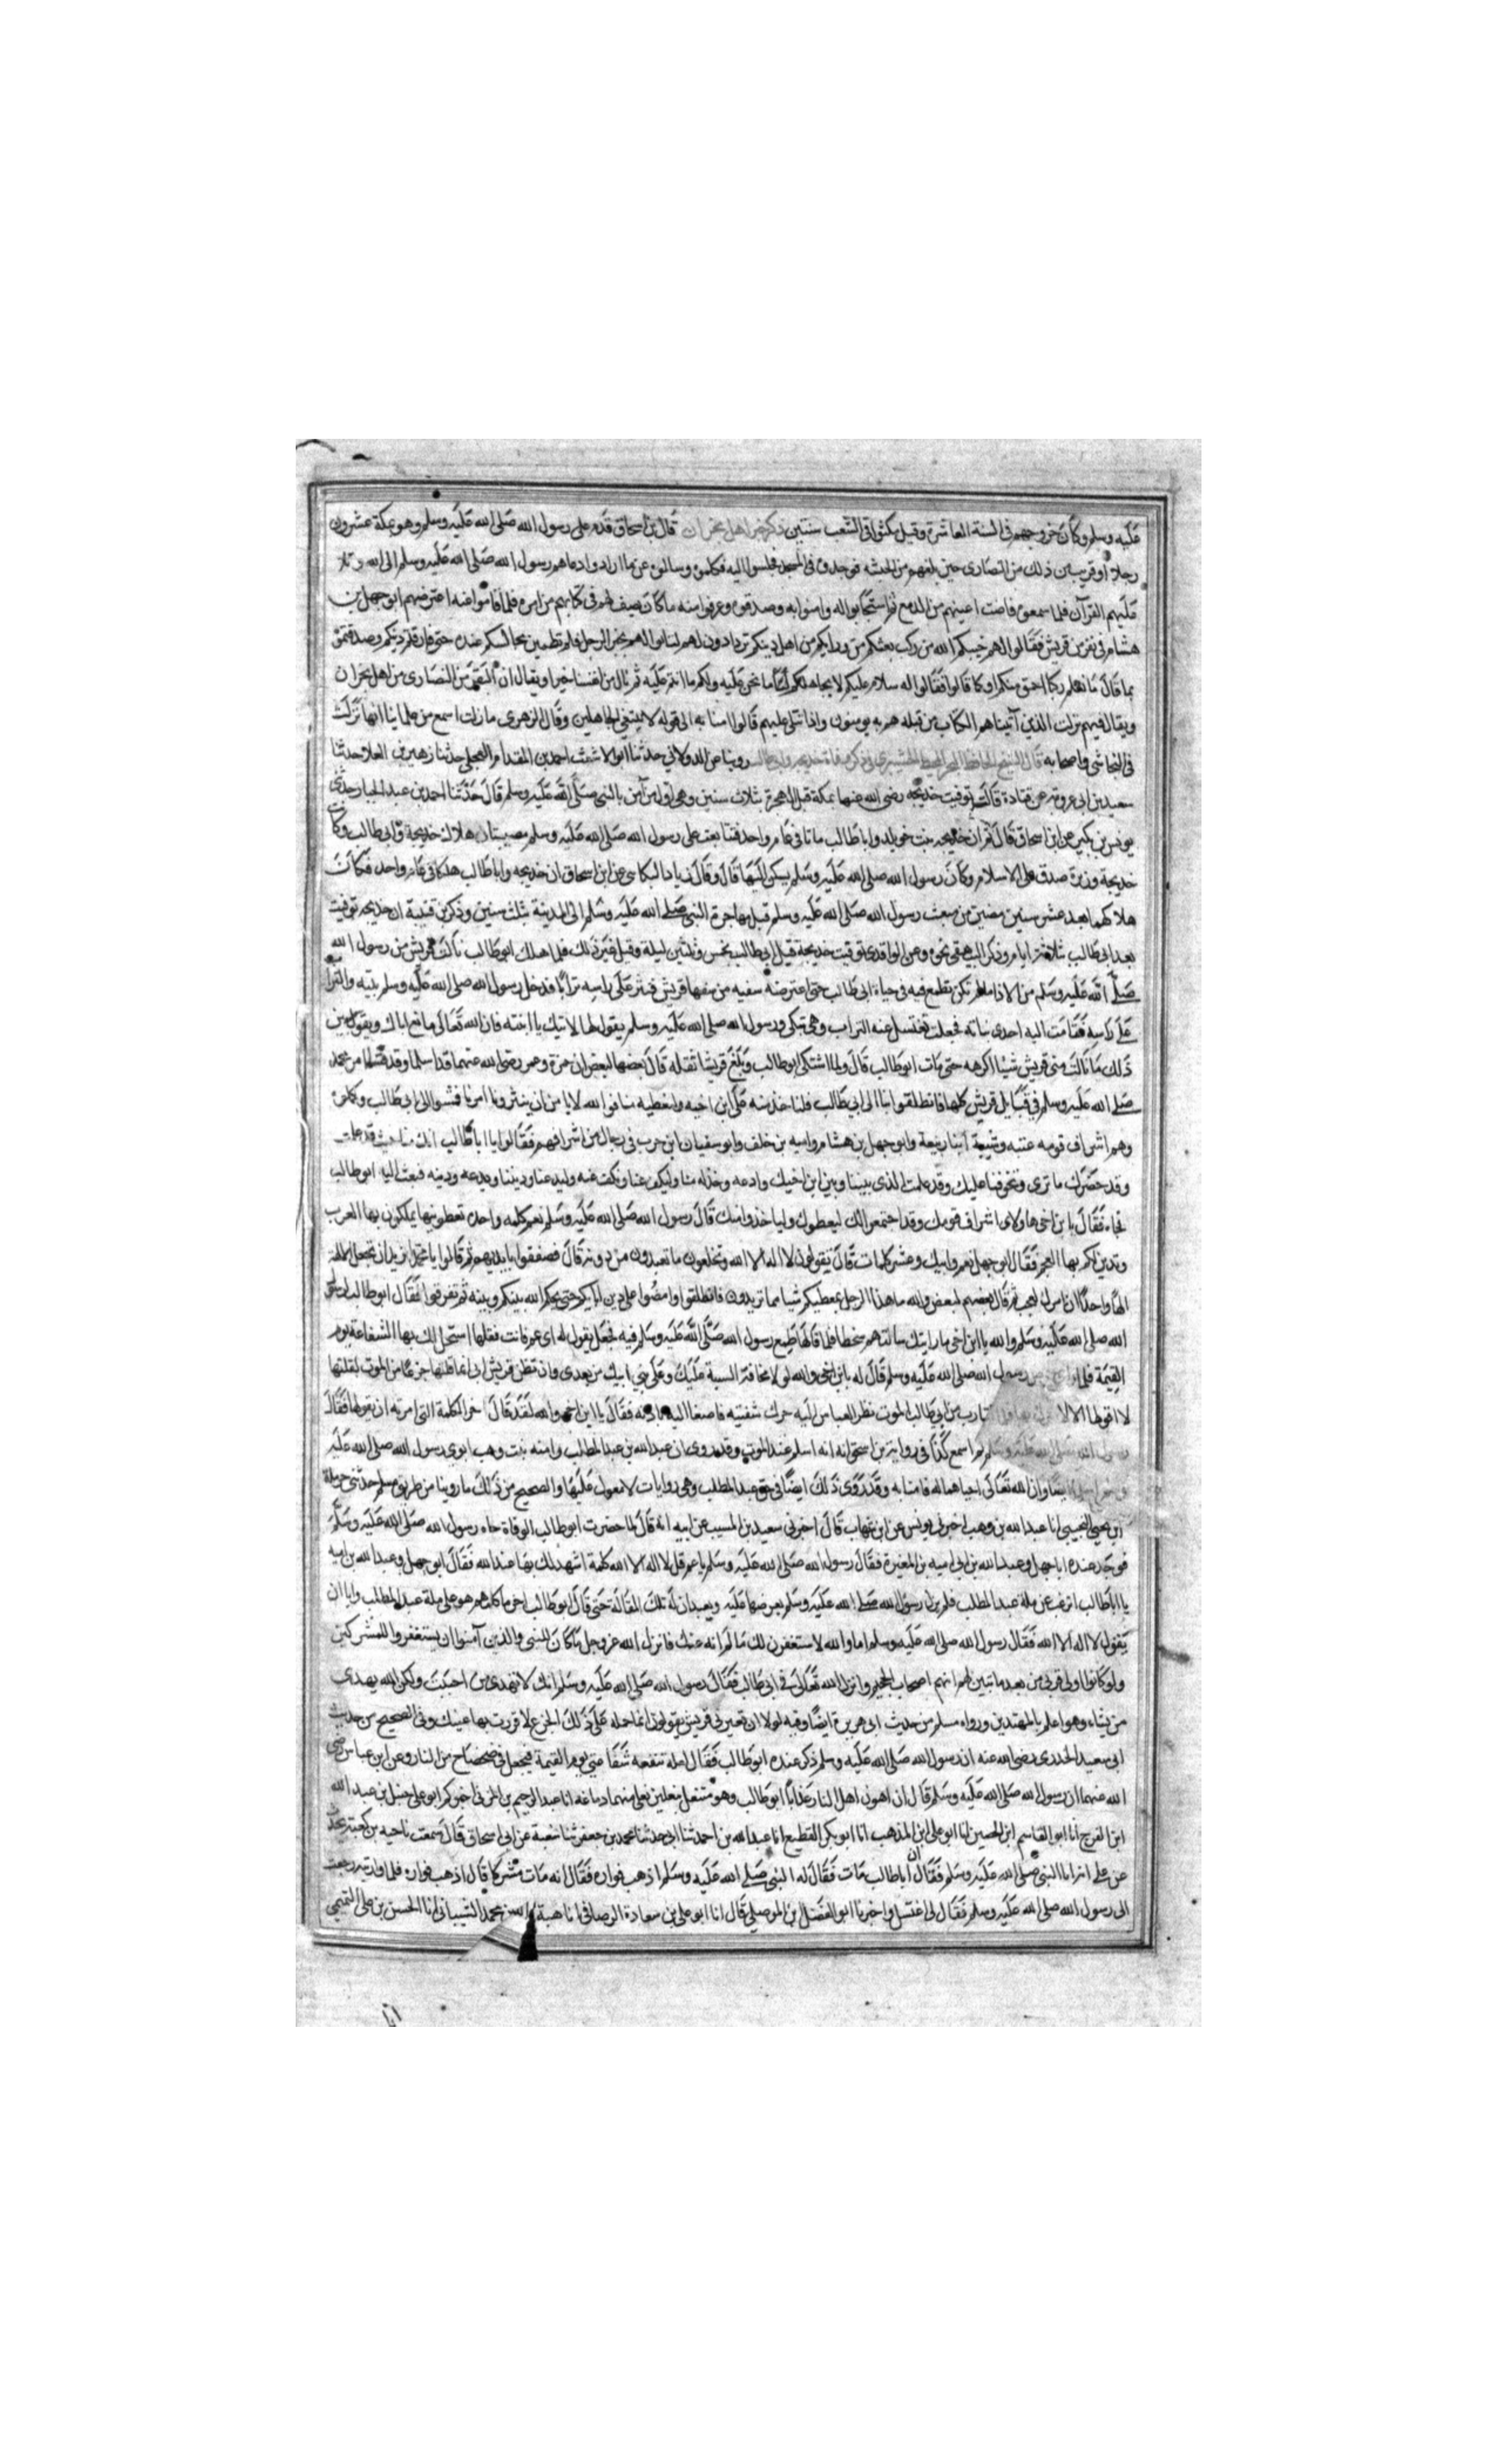 عليه وسلم وكان خروجهم فى السنة العاشرة وقيل مكثوا فى الشعب سنتين ذكر خبر اهل نجران قال بن اسحاق قدم على رسول الله صلى الله عليه وسلم وهو بمكة عشرون
رجلا او قريب من ذلك من النصارى حين بلغهم من الحبشه فوجدوه فى المجلس فجلسوا اليه فكلموه وسالوه عن ما ارادوا دعاهم رسول الله صلى الله عليه وسلم الى الله وتلا
عليهم القرآن فلما سمعوه فاضت اعينهم من الدمع ثم استجابوا له وامنوا به وصدقوه وعرفوا منه ما كان يوصف لهم فى كتابهم من امره فلما قاموا عنه اعترضهم ابو جهل بن
هشام فى نفر من قريش فقالوا لهم خيبكم الله من ركب بعثكم من ورايكم من اهل دينكم ترتادون لهم لتاتوا لهم بخبر الرجل فلم تطمين مجالسكم عنده حتى فارقتم دينكم وصدقتموه
بما قال ما نعلم ركبا احمق منكم او كما قالوا فقالوا له سلام عليكم لا نجاهلكم لنا ما نحن عليه ولكم ما انتم عليه ثم نال من انفسنا خيرا ويقال ان النفر من النصارى من اهل نجران
ويقال فيهم نزلت الذين آتيناهم الكتاب من قبله هم به يومنون واذا تتلى عليهم قالوا امنا به الى قوله لا نبتغي الجاهلين وقال الزهرى ما زلت اسمع من علماينا انها نزلت
فى النجاشى واصحابه قال الشيخ الحافظ ذكر وفاة خديجه وابى طالب روينا عن الدولابي حدثنا ابو الاشعث احمد بن المقدام العجلى حدثنا زهير بن العلا حدثنا
سعيد بن ابى عروبة عن قتادة قال توفيت خديجه رضى الله عنها بمكة قبل الهجرة بثلاث سنين وهى اول من آمن بالنبى صلى الله عليه وسلم قال حدثنا احمد بن عبد الجبار حدثنى
يونس بن بكير عن ابن اسحاق قال ثم ان خديجه بنت خويلد وابا طالب ماتا فى عام واحد فتتابعت على رسول الله صلى الله عليه وسلم مصيبتان هلاك خديجة وابى طالب وكانت
خديجة وزيرة صدق على الاسلام وكان رسول الله صلى الله عليه وسلم يسكن اليها قال وقال زياد البكاسى عن ابن اسحاق ان خديجه وابا طالب هلكا فى عام واحد فكان
هلاكهما بعد عشر سنين مضين من مبعث رسول الله صلى الله عليه وسلم قبل مهاجرة النبي صلى الله عليه وسلم الى المدينة بثلث سنين وذكر بن قتيبة ان خديجه توفيت
بعد ابى طالب بثلاثة ايام وذكر البيهقى نحوه وعن الواقدى توفيت خديجة قبل ابى طالب بخمس وثلثين ليلة وقيل غير ذلك فلما هلك ابو طالب نالت قريش من رسول الله
صلى الله عليه وسلم من الاذى ما لم تكن تطمع فيه فى حياة ابى طالب حتى اعترضه سفيه من سفهاء قريش فنثر على راسه ترابا فدخل رسول الله صلى الله عليه وسلم بيته والتراب
على راسه فقامت اليه احدى بناته فجعلت تغتسل عنه التراب وهى تبكى ورسول الله صلى الله عليه وسلم يقول لها لا تبك يا ابنته فان الله تعالى مانع اباك ويقول بين
ذلك ما نالت منى قريش شيئا اكرهه حتى مات ابو طالب قال ولما اشتكى ابو طالب وبلغ قريشا ثقله قال بعضها لبعض ان حمزة وعمر رضى الله عنهما قد اسلما وقد فشا امر محمد
صلى الله عليه وسلم فى قبايل قريش كلها فانطلقوا بنا الى ابي طالب فلناخذ منه على ابن اخيه وليعطيه منا فوالله لا نامن ان يبتزونا امرنا فمشوا الى ابى طالب وكلموه
وهم اشراف قومه عتبه وشيبة ابنا ربيعة وابو جهل بن هشام واميه بن خلف وابو سفيان ابن حرب فى رجال من اشرافهم فقالوا يا ابا طالب انك منا حيث قد علمت
وقد حضرك ما ترى وتخوفنا عليك وقد علمت الذى بيننا وبين ابن اخيك فادعه وخذ له منا وليكف عنا ونكف عنه وليدعنا وديننا وندعه ودينه فبعث اليه ابو طالب
فجاء فقال يا بن اخى هاولاى اشراف قومك وقد اجتمعوا لك ليعطوك ولياخذوا منك قال رسول الله صلى الله عليه وسلم نعم كلمه واحده تعطونيها تملكون بها العرب
وتدين لكم بها العجم فقال ابو جهل نعم وابيك وعشر كلمات قال تقولون لا اله الا الله وتخلعون ما تعبدون من دونه قال فصفقوا بايديهم ثم قالوا يا محمد اتريد ان تجعل الالهة
الها واحدا ان امرك لعجب ثم قال بعضهم لبعض والله ما هذا الرجل بمعطيكم شيا مما تريدون فانطلقوا وامضوا على دين ابايكم حتى يحكم الله بينكم وبينه ثم تفرقوا فقال ابو طالب لرسول
الله صلى الله عليه وسلم والله يا ابن اخى ما رايتك سالتهم شططا فلما قالها طمع رسول الله صلى الله عليه وسلم فيه فجعل يقول له اى عم فانت فقلها استحل لك بها الشفاعة يوم
القيمة فلما رسول الله صلى الله عليه وسلم قال له يا بن اخى والله لولا مخافة السبة عليك وعلى بنى ابيك من بعدى وان تظن قريش انى انما قلتها جزعا من الموت لقلتها
لا اقولها الا لاسرك بها تقارب من ابي طالب الموت نظر العباس اليه حرك شفتيه فاصغا اليه باذنه فقال يا ابن اخى والله لقد قال اخى الكلمة التى امرته ان يقولها فقال
رسول الله صلى الله عليه وسلم لم اسمع كذا فى رواية بن اسحق انه اسلم عند الموت وقد روى ان عبد الله بن عبد المطلب وامنه بنت وهب ابوى رسول الله صلى الله عليه
وسلم ايضا وان الله تعالى احياهما له فامنا به وقد روى ذلك ايضا فى حق عبد المطلب وهى روايات لا معول عليها والصحيح من ذلك ما روينا من طريق مسلم حدثنى حرملة
ابن يحيى التجيبى انا عبد الله بن وهب اخبرنى يونس عن ابن شهاب قال اخبرنى سعيد بن المسيب عن ابيه انه قال لما حضرت ابو طالب الوفاة جاءه رسول الله صلى الله عليه وسلم
فوجد عنده ابا جهل وعبد الله بن ابى اميه بن المغيرة فقال رسول الله صلى الله عليه وسلم يا عم قل لا اله الا الله كلمة اشهد لك بها عند الله فقال ابو جهل وعبد الله بن اميه
يا ابا طالب اترغب عن ملة عبد المطلب فلم يزل رسول الله صلى الله عليه وسلم يعرضها عليه ويعيدان له تلك المقالة حتى قال ابو طالب اخر ما كلمهم هو على ملة عبد المطلب وابا ان
يقول لا اله الا الله فقال رسول الله صلى الله عليه وسلم اما والله لاستغفرن لك ما لم انه عنك فانزل الله عز وجل ما كان للنبى والذين آمنوا ان يستغفروا للمشركين
ولو كانوا اولى قربى من بعد ما تبين لهم انهم اصحاب الجحيم وانزل الله تعالى فى ابى طالب فقال رسول الله صلى الله عليه وسلم انك لا تهدى من احببت ولكن الله يهدى
من يشاء وهو اعلم بالمهتدين ورواه مسلم من حديث ابى هريرة ايضا وفيه لولا ان تعيرنى قريش يقولون انما حمله على ذلك الجزع لاقررت بها عينك وفى الصحيح من حديث
ابى سعيد الخدرى رضى الله عنه ان رسول الله صلى الله عليه وسلم ذكر عنده ابو طالب فقال لعله تنفعه شفاعتى يوم القيمة فيجعل فى ضحضاح من النار وعن ابن عباس رضى
الله عنهما ان رسول الله صلى الله عليه وسلم قال ان اهون اهل النار عذابا ابو طالب وهو متنعل بنعلين يغلى منهما دماغه انا عبد الرحيم بن المزى اخبركم ابو على حنبل بن عبد الله
ابن الفرج انا ابو القاسم ابن الحصين انا ابو على ابن المذهب انا ابو بكر القطيعى انا عبد الله بن احمد ثنا ابى حدثنا محمد بن جعفر ثنا شعبة عن ابى اسحاق قال سمعت ناجيه بن كعب يحدث
عن على انه اتا النبى صلى الله عليه وسلم فقال ان ابا طالب مات فقال له النبى صلى الله عليه وسلم اذهب فواره فقال انه مات مشركا قال اذهب فواره فلما واريته رجعت
الى رسول الله صلى الله عليه وسلم فقال لى اغتسل واخبرنا ابو الفضل ابن الموصلى قال انا ابو على بن سعادة الرصافى انا هبة الله بن محمد الشيبانى انا الحسن بن على التميمى
انا